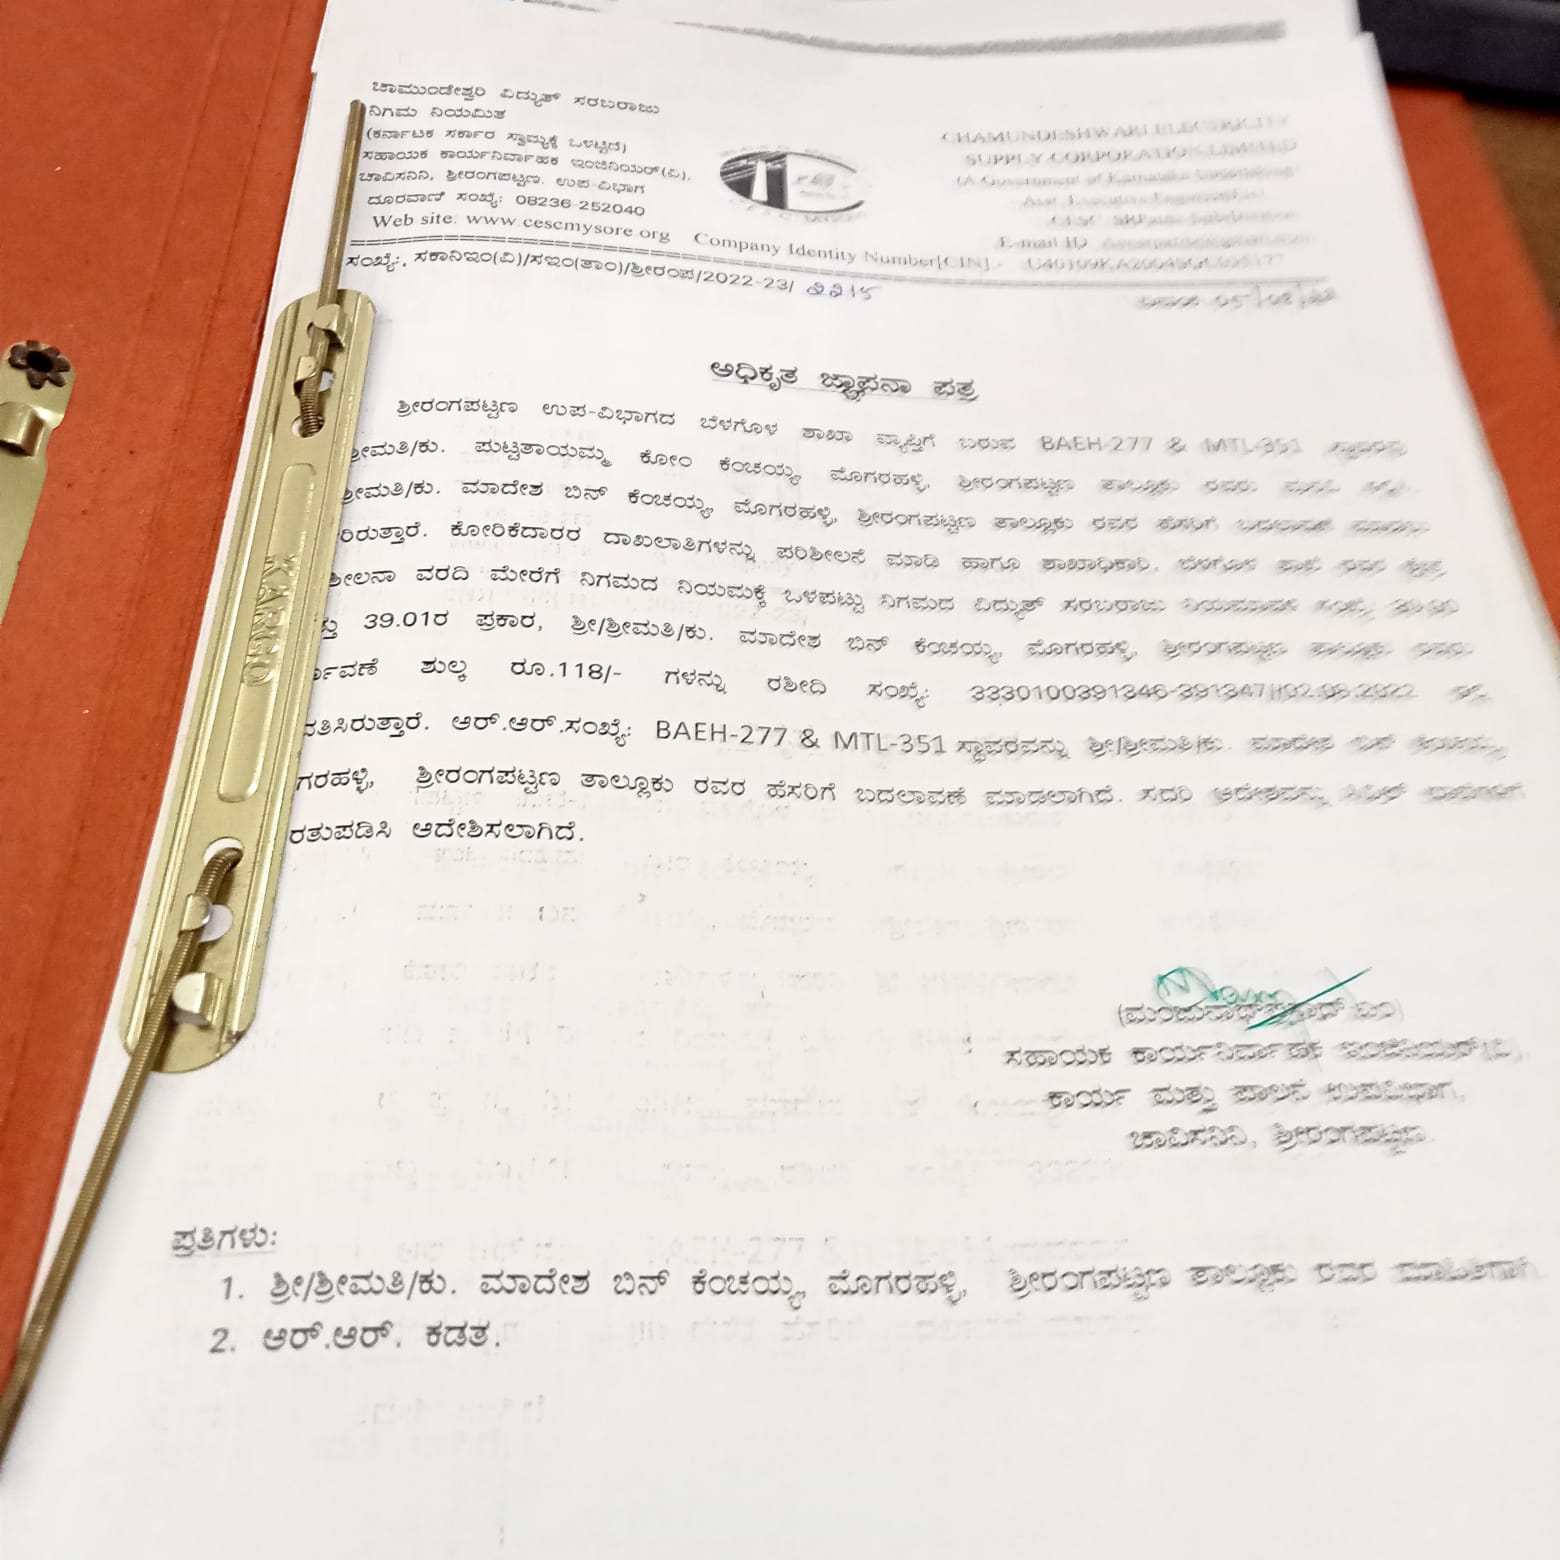 ಚಾಮುಂಡೇಶ್ವರಿ ವಿದ್ಯುತ್ ಸರಬರಾಜು
ನಿಗಮ ನಿಯಮಿತ
(ಕರ್ನಾಟಕ ಸರ್ಕಾರ ಸ್ವಾಮ್ಯಕ್ಕೆ ಒಳಪಟ್ಟಿದೆ)
ಸಹಾಯಕ ಕಾರ್ಯನಿರ್ವಾಹಕ ಇಂಜಿನಿಯರ್(ವಿ),
ಚಾವಿಸನಿನಿ, ಶ್ರೀರಂಗಪಟ್ಟಣ. ಉಪ-ವಿಭಾಗ
ದೂರವಾಣಿ ಸಂಖ್ಯೆ: 08236-252040
Web site. www.cescmysore.org
CHAMUNDESHWARI ELECTRICITY
SUPPLY CORPORATION LIMITED
(A Government of Karnataka
E-mail ID
Company Identity Number[CIN].-
ಸಂಖ್ಯೆ:, ಸಕಾನಿಇಂ(ವಿ)/ಸಇಂ(ತಾಂ)/ಶ್ರೀರಂಪ/2022-23/ 2215
ಅಧಿಕೃತ ಜ್ಞಾಪನಾ ಪತ್ರ
ಶ್ರೀರಂಗಪಟ್ಟಣ ಉಪ-ವಿಭಾಗದ ಬೆಳಗೊಳ ಶಾಖಾ ವ್ಯಾಪ್ತಿಗೆ ಬರುವ BAEH-277 & MTL-351
ಶ್ರೀಮತಿ/ಕು. ಪುಟ್ಟತಾಯಮ್ಮ ಕೋಂ ಕೆಂಚಯ್ಯ, ಮೊಗರಹಳ್ಳಿ, ಶ್ರೀರಂಗಪಟ್ಟಣ ತಾಲ್ಲೂಕು ರವರ
ಶ್ರೀಮತಿ/ಕು. ಮಾದೇಶ ಬಿನ್ ಕೆಂಚಯ್ಯ, ಮೊಗರಹಳ್ಳಿ, ಶ್ರೀರಂಗಪಟ್ಟಣ ತಾಲ್ಲೂಕು ರವರ ಹೆಸರಿಗೆ ಬದಲಾವಣೆ
ರಿರುತ್ತಾರೆ. ಕೋರಿಕೆದಾರರ ದಾಖಲಾತಿಗಳನ್ನು ಪರಿಶೀಲನೆ ಮಾಡಿ ಹಾಗೂ ಶಾಖಾಧಿಕಾರಿ, ಬೆಳಗೊಳ ಶಾಖೆ ರವರ
ಶೀಲನಾ ವರದಿ ಮೇರೆಗೆ ನಿಗಮದ ನಿಯಮಕ್ಕೆ ಒಳಪಟ್ಟು ನಿಗಮದ ವಿದ್ಯುತ್ ಸರಬರಾಜು
ತ್ತು 39.01ರ ಪ್ರಕಾರ, ಶ್ರೀ/ಶ್ರೀಮತಿ/ಕು. ಮಾದೇಶ ಬಿನ್ ಕೆಂಚಯ್ಯ, ಮೊಗರಹಳ್ಳಿ, ಶ್ರೀರಂಗಪಟ್ಟಣ ತಾಲ್ಲೂಕು
ರ್ಾವಣೆ ಶುಲ್ಕ ರೂ.118/- ಗಳನ್ನು ರಶೀದಿ ಸಂಖ್ಯೆ: 3330100391346-391347||02.08.2022
ವತಿಸಿರುತ್ತಾರೆ. ಆರ್.ಆರ್.ಸಂಖ್ಯೆ: BAEH-277 & MTL-351 ಸ್ಥಾವರವನ್ನು ಶ್ರೀ/ಶ್ರೀಮತಿ/ಕು. ಮಾದೇಶ ಬಿನ್ ಕೆಂಚಯ್ಯ,
ಗರಹಳ್ಳಿ, ಶ್ರೀರಂಗಪಟ್ಟಣ ತಾಲ್ಲೂಕು ರವರ ಹೆಸರಿಗೆ ಬದಲಾವಣೆ ಮಾಡಲಾಗಿದೆ. ಸದರಿ ಆದೇಶವನ್ನು
ರತುಪಡಿಸಿ ಆದೇಶಿಸಲಾಗಿದೆ.
ಸಹಾಯಕ ಕಾರ್ಯನಿರ್ವಾಹಕ ಇಂಜಿನಿಯರ್(ವಿ),
ಕಾರ್ಯ ಮತ್ತು ಪಾಲನೆ ಉಪವಿಭಾಗ,
ಚಾವಿಸನಿನಿ, ಶ್ರೀರಂಗಪಟ್ಟಣ.
ಪ್ರತಿಗಳು:
1. ಶ್ರೀ/ಶ್ರೀಮತಿ/ಕು. ಮಾದೇಶ ಬಿನ್ ಕೆಂಚಯ್ಯ, ಮೊಗರಹಳ್ಳಿ, ಶ್ರೀರಂಗಪಟ್ಟಣ ತಾಲ್ಲೂಕು ರವರ ಮಾಹಿತಿಗಾಗಿ.
2. ಆರ್.ಆರ್. ಕಡತ.
KARGO